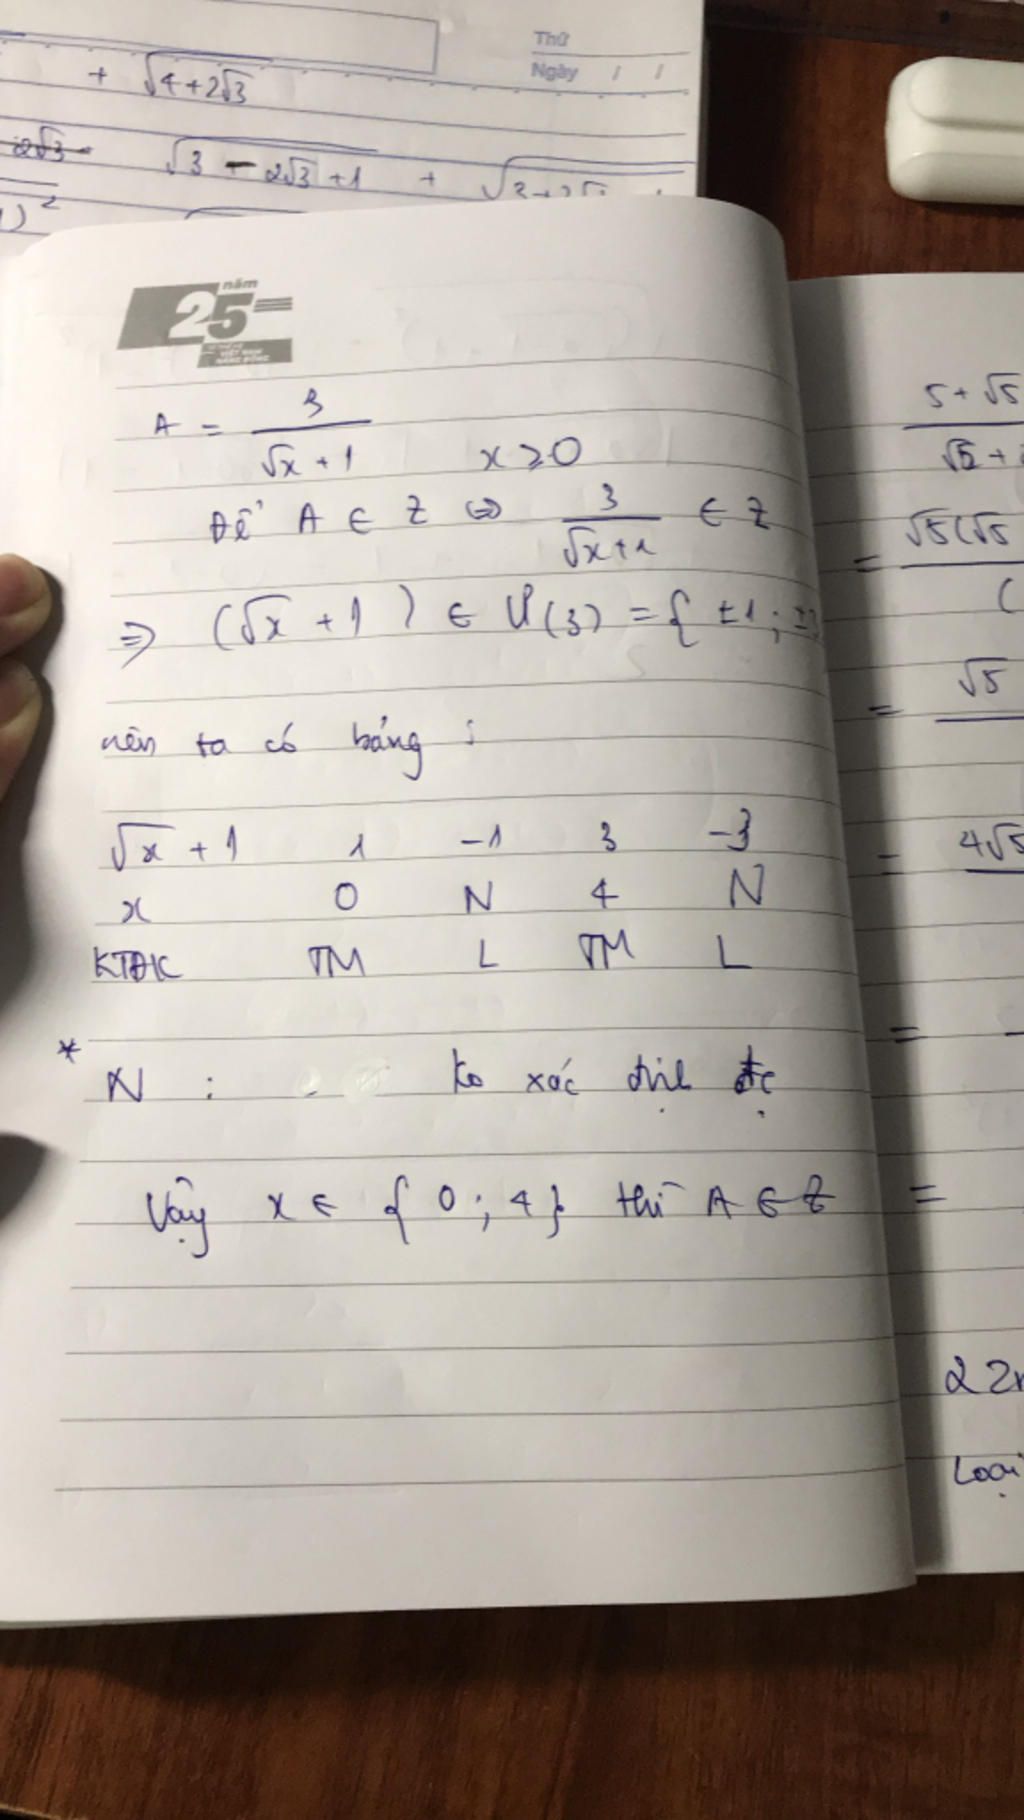 Thứ
Ngày / /
+ √(4+2√3)
√(3 - 2√3 + 1) +
)²
năm
25
VIỆT NAM
NĂNG ĐỘNG
A = 3/(√x + 1) x ≥ 0
Để A ∈ Z ⇔ 3/(√x+1) ∈ Z
⇒ (√x + 1) ∈ Ư(3) = { ±1; ±3
nên ta có bảng :
√x + 1 1 -1 3 -3
x 0 N 4 N
KTĐK TM L TM L
* N : ko xác định đc
Vậy x ∈ { 0 ; 4 } thì A ∈ Z
5 + √5
√5 +
= √5(√5
(
= √5
= 4√5
=
=
Loại